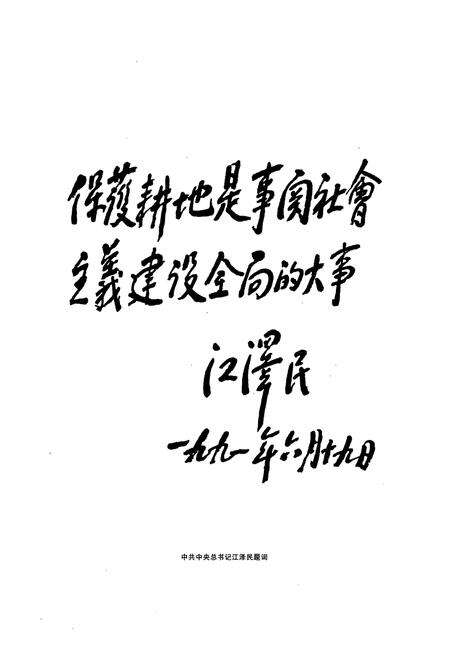 保護耕地是事関社會
主義建设全局的大事
江澤民
一九九一年六月十九日
中共中央总书记江泽民题词